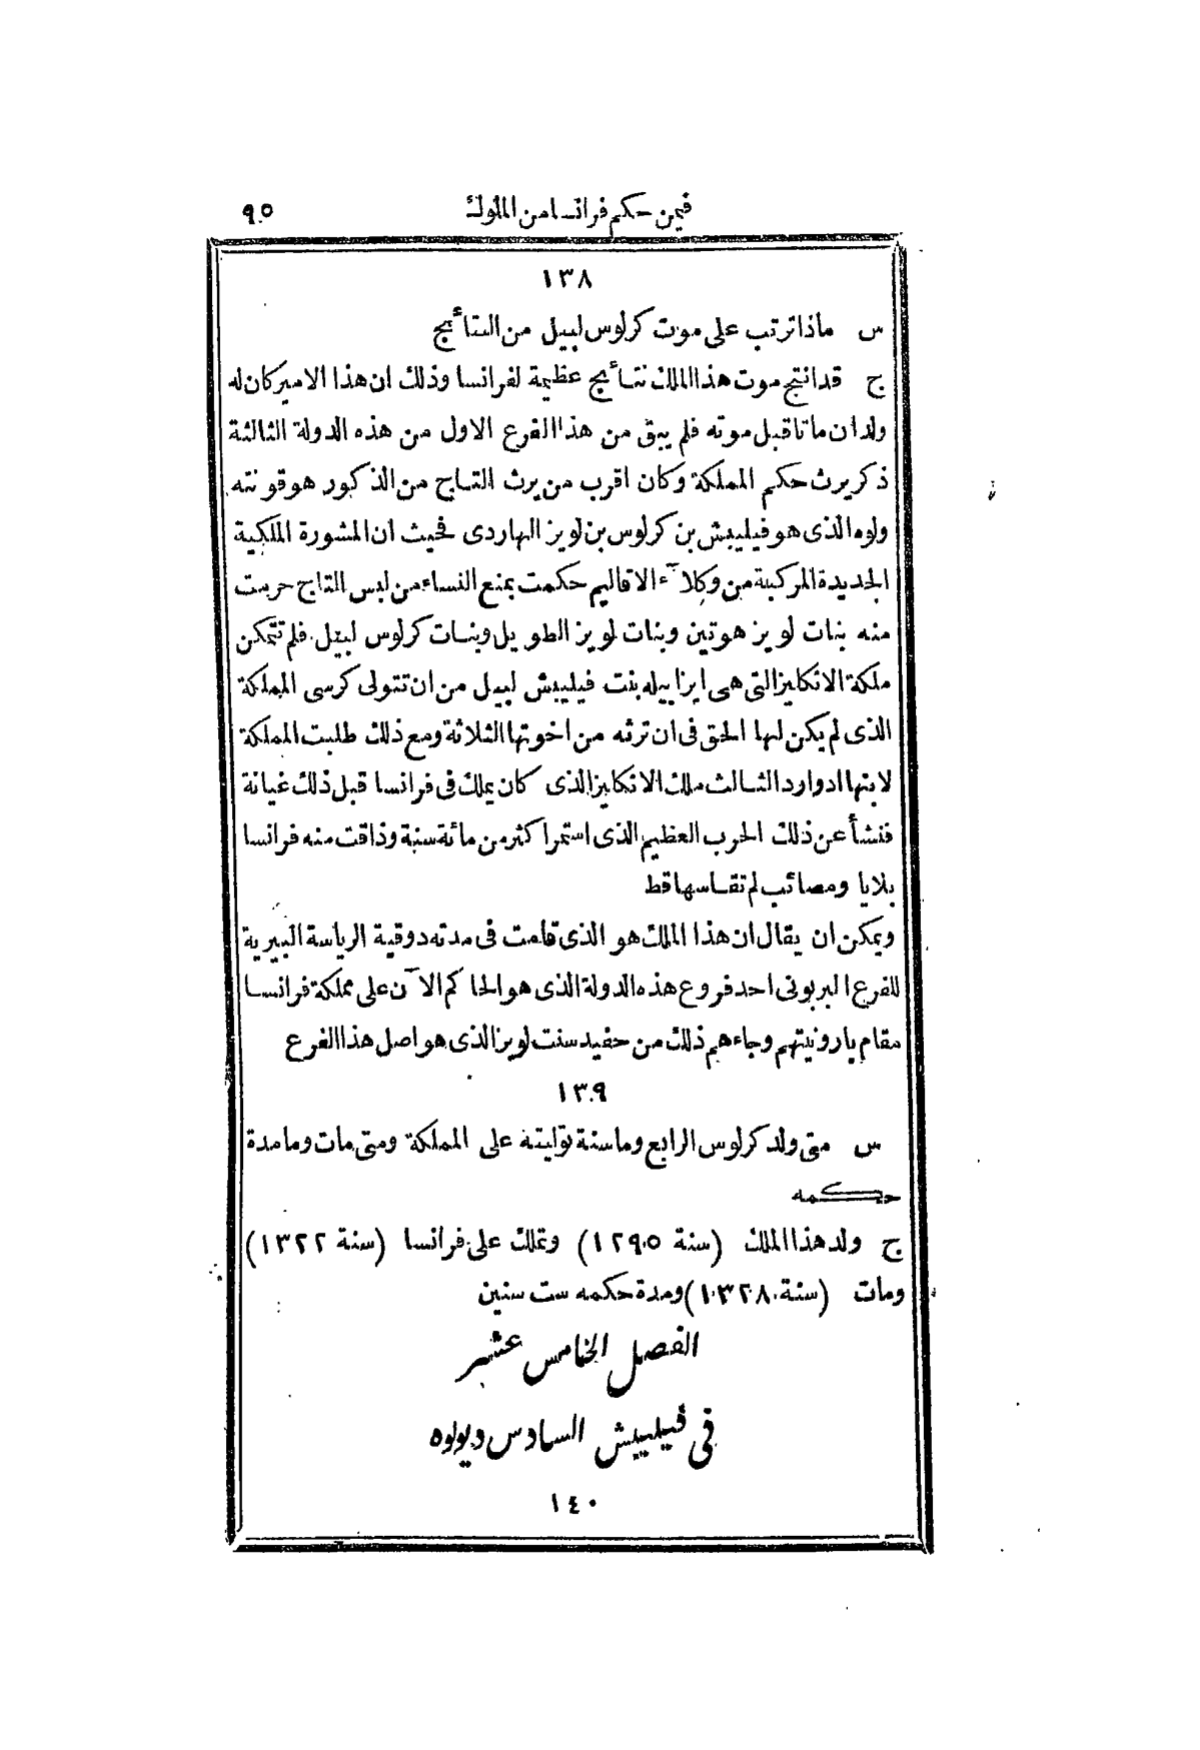 فيمن حكم فرانسا من الملوك ٩٥
١٣٨
س ماذا ترتب على موت كرلوس لبيل من النتائج
ج قد انتج موت هذا الملك نتائج عظيمة لفرانسا وذلك ان هذا الامير كان له
ولدان ماتا قبل موته فلم يبق من هذا الفرع الاول من هذه الدولة الثالثة
ذكر يرث حكم المملكة وكان اقرب من يرث التاج من الذكور هو قونته
ولوه الذى هو فيليبش بن كرلوس بن لويز الهاردى فحيث ان المشورة الملكية
الجديدة المركبة من وكلاء الاقاليم حكمت بمنع النساء من لبس التاج حرمت
منه بنات لويز هوتين وبنات لويز الطويل وبنات كرلوس لبيل فلم تتمكن
ملكة الانكليز التى هى ايزابيله بنت فيليبش لبيل من ان تتولى كرسى المملكة
الذى لم يكن لها الحق فى ان ترثه من اخوتها الثلاثة ومع ذلك طلبت المملكة
لابنها ادوارد الثالث ملك الانكليز الذى كان يملك فى فرانسا قبل ذلك غيانة
فنشأ عن ذلك الحرب العظيم الذى استمر اكثر من مائة سنة وذاقت منه فرانسا
بلايا ومصائب لم تقاسها قط
ويمكن ان يقال ان هذا الملك هو الذى قامت فى مدته دوقية الرياسة البيرية
للفرع البربونى احد فروع هذه الدولة الذى هو الحاكم الآن على مملكة فرانسا
مقام بارونيتهم وجاءهم ذلك من حفيد سنت لويز الذى هو اصل هذا الفرع
١٣٩
س متى ولد كرلوس الرابع وما سنة توليته على المملكة ومتى مات وما مدة
حكمه
ج ولد هذا الملك (سنة ١٢٩٥) وتملك على فرانسا (سنة ١٣٢٢)
ومات (سنة ١٣٢٨) ومدة حكمه ست سنين
الفصل الخامس عشر
فى فيليبش السادس ديولوه
١٤٠